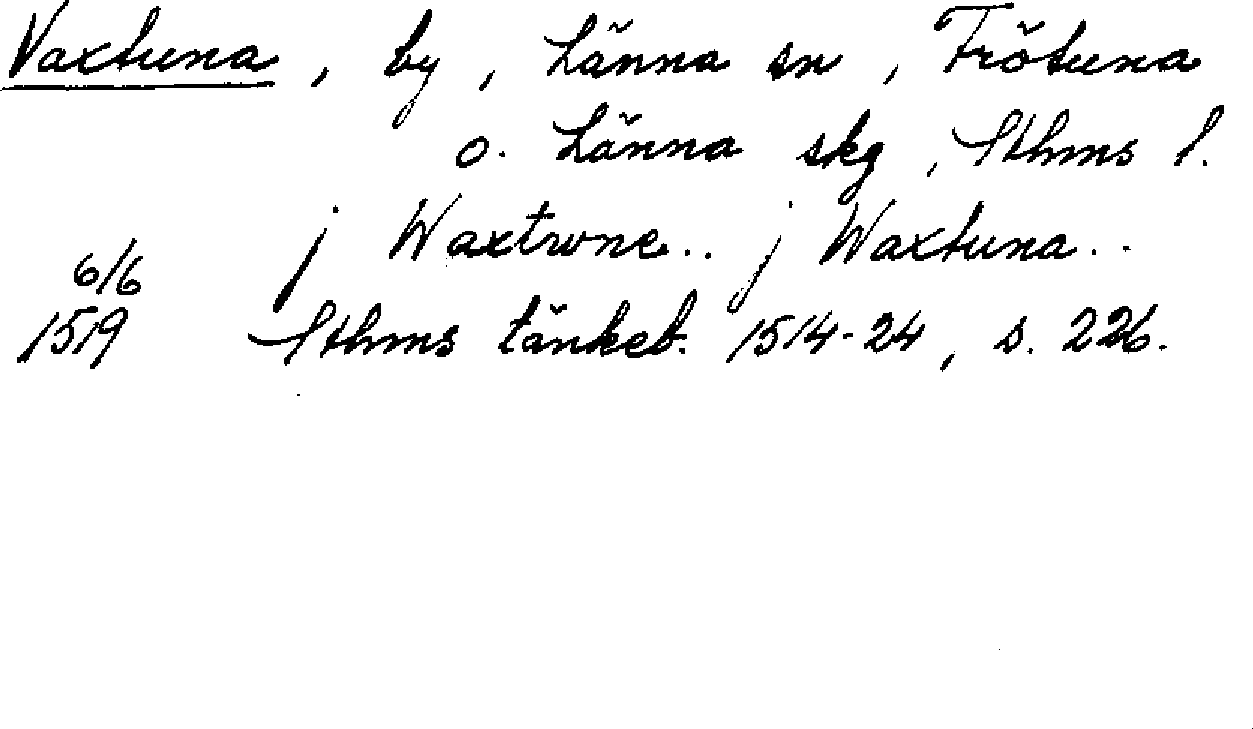 Vaxtuna, by, Länna sn, Frötuna
o. Länna skg, Sthms l.
j Waxtwne.. j Waxtuna..
6/6
1519 Sthms tänkeb. 1514-24, s. 226.